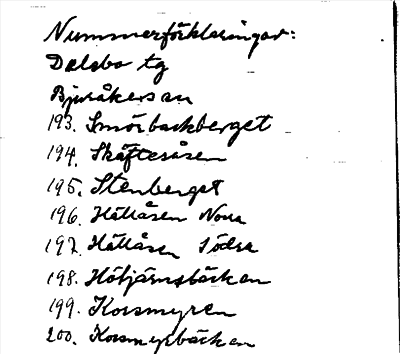 Nummerförklaringar:
Dalsbo tg
Bjuråkers sn
193. Smörbackberget
194. Skäfteråsen
195. Stenberget
196. Hällåsen Norra
197. Hällåsen Södra
198. Hötjärnsbäcken
199. Korsmyren
200. Korsmyrbäcken